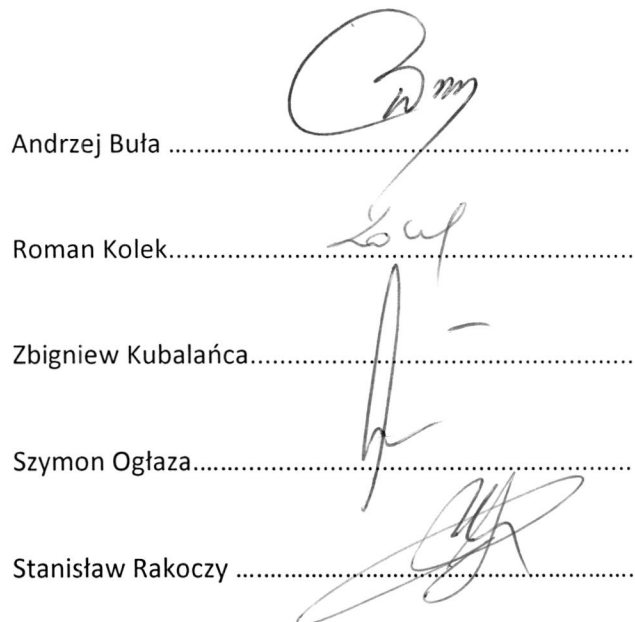 Andrzej Buła ..........................................................
Roman Kolek..........................................................
Zbigniew Kubalańca................................................
Szymon Ogłaza.......................................................
Stanisław Rakoczy ..................................................